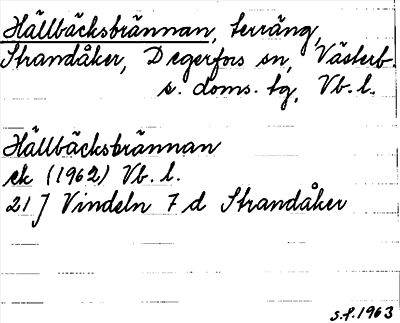 Hällbäcksbrännan, terräng,
Strandåker, Degerfors sn, Västerb.
s. doms. tg, Vb. l.
Hällbäcksbrännan
ek (1962) Vb. l.
21 J Vindeln 7 d Strandåker
S.f. 1963